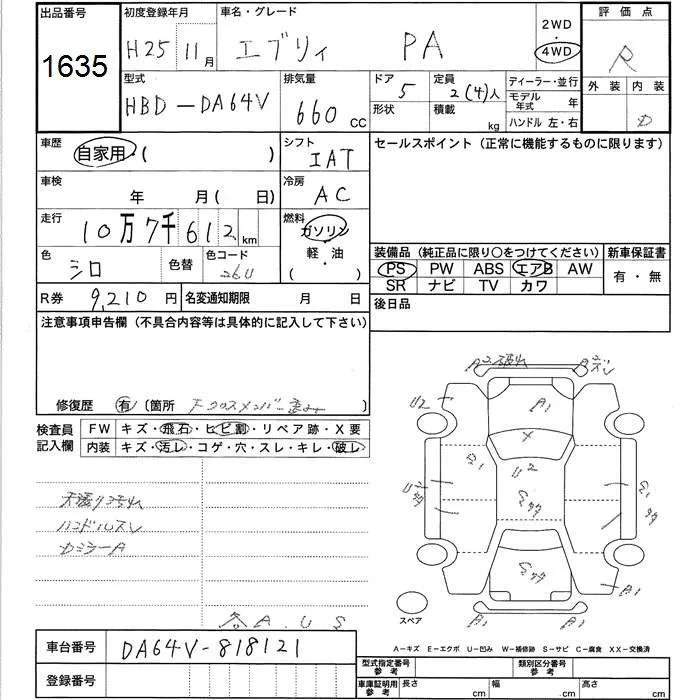 出品番号
1635
初度登録年月
H25 11月
車名・グレード
エブリィ PA
2WD
・
4WD
評価点
R
外装 内装
D
型式
HBD-DA64V
排気量
660 CC
ドア
5
定員
2(4)人
形状
積載
kg
ディーラー・並行
モデル年式 年
ハンドル 左・右
車歴
自家用・( )
シフト
IAT
セールスポイント (正常に機能するものに限ります)
車検
年 月( 日)
冷房
AC
走行
10万7千612km
燃料
ガソリン
軽・油
( )
色
シロ
色替
色コード
26U
装備品 (純正品に限り○をつけてください)
PS PW ABS エアB AW
SR ナビ TV カワ
新車保証書
有・無
R券 9,210円
名変通知期限 月 日
後日品
注意事項申告欄 (不具合内容等は具体的に記入して下さい)
修復歴 有 〔箇所 下クロスメンバー歪み 〕
検査員記入欄
FW キズ・飛石・ヒビ割・リペア跡・X要
内装 キズ・汚レ・コゲ・穴・スレ・キレ・破レ
ハンドルスレ
カミラーA
各A.U.S
A2 破れ
A2 ズレ
U2
A1
X
U2
A1
A1
A1
スペア
A-キズ E-エクボ U-凹み W-補修跡 S-サビ C-腐食 XX-交換済
車台番号
DA64V-818121
登録番号
型式指定番号参考
類別区分番号参考
車庫証明用参考
長さ cm
幅 cm
高さ cm